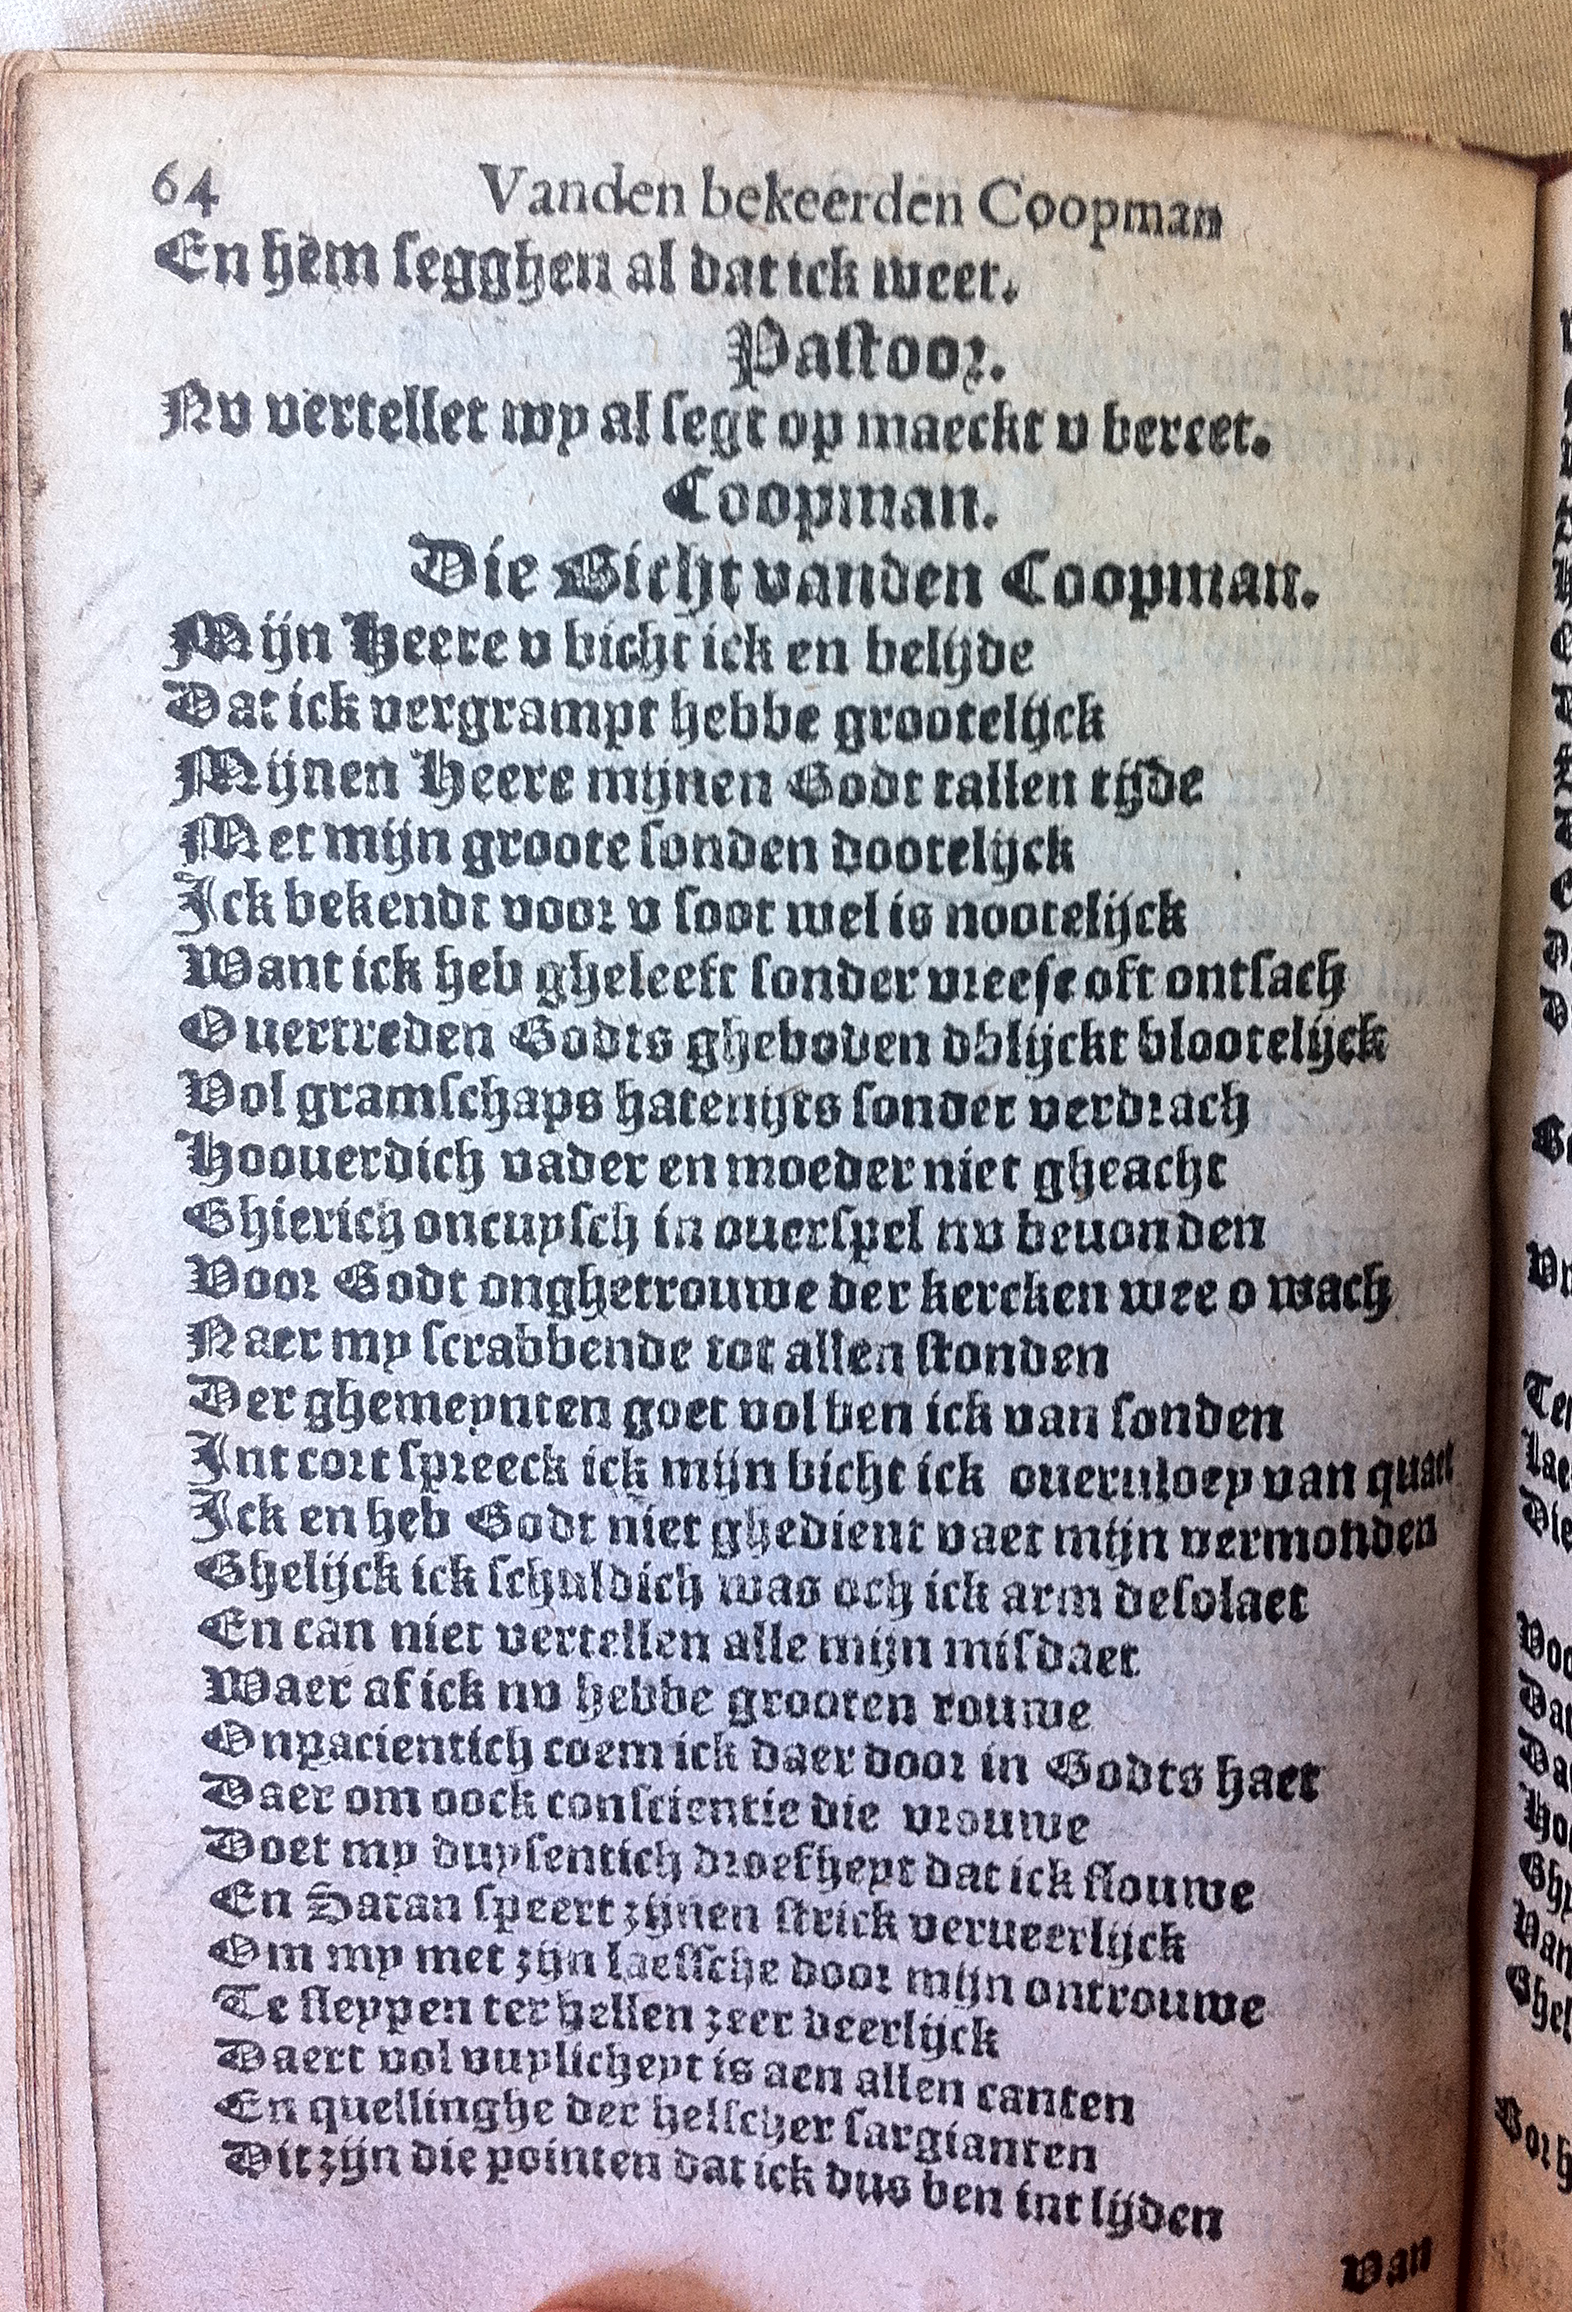 64 Vanden bekeerden Coopman
En hem segghen al dat ick weet.
Pastoor.
Nv vertellet my al segt op maeckt v bereet.
Coopman.
Die Bicht vanden Coopman.
Mijn Heere v bicht ick en belijde
Dat ick vergrampt hebbe grootelijck
Mijnen Heere mijnen Godt tallen tijde
Met mijn groote sonden dootelijck
Ick bekendt voor v soot wel is nootelijck
Want ick heb gheleeft sonder vreese oft ontsach
Ouertreden Godts gheboden dblijckt blootelijck
Vol gramschaps hatenijts sonder verdrach
Hoouerdich vader en moeder niet gheacht
Ghierich oncuysch in ouerspel nv beuonden
Voor Godt onghetrouwe der kercken wee o wach
Naer my scrabbende tot allen stonden
Der ghemeynten goet vol ben ick van sonden
Int cort spreeck ick mijn bicht ick ouervloey van quaet
Ick en heb Godt niet ghedient naer mijn vermonden
Ghelijck ick schuldich was och ick arm desolaet
En can niet vertellen alle mijn misdaet
Waer af ick nv hebbe grooten rouwe
Onpacientich coem ick daer door in Godts haet
Daer om oock conscientie die vrouwe
Doet my duysentich droefheyt dat ick flouwe
En Satan speert zijnen strick verueerlijck
Om my met zijn laetsche door mijn ontrouwe
Te sleypen ter hellen zeer deerlijck
Daert vol vuylicheyt is aen allen canten
En quellinghe der helscher sargianten
Dit zijn die pointen dat ick dus ben int lijden
Van